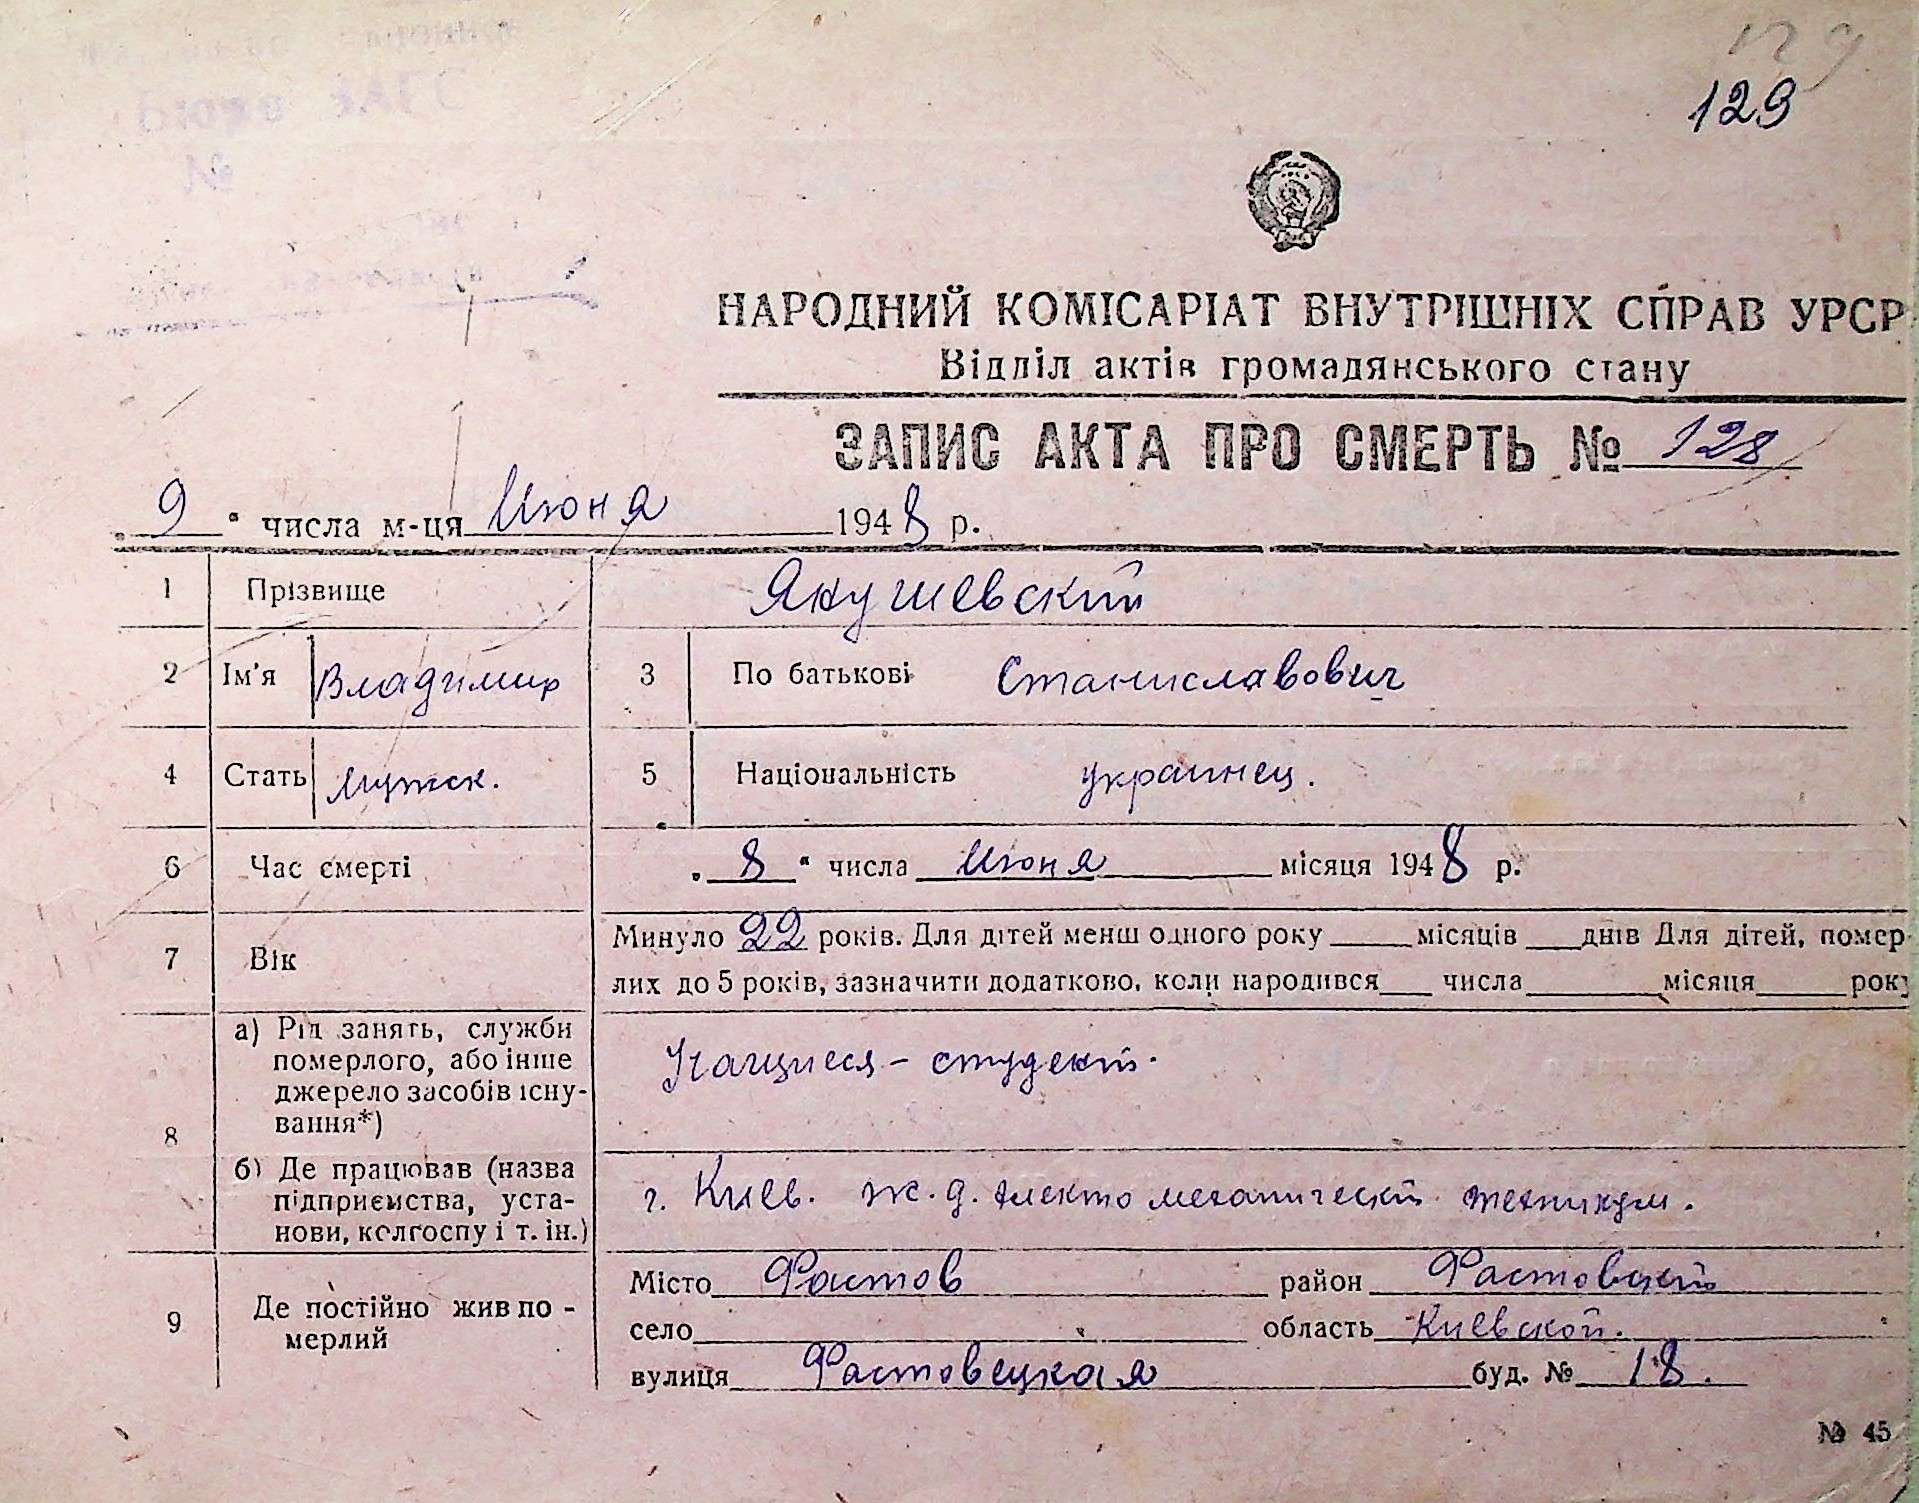 129
129
НАРОДНИЙ КОМІСАРІАТ ВНУТРІШНІХ СПРАВ УРСР
Відділ актів громадянського стану
ЗАПИС АКТА ПРО СМЕРТЬ № 128
„ 9 “ числа м-ця Июня 1948 р.
1 Прізвище Якушевский
2 Ім'я Владимир 3 По батькові Станиславович
4 Стать мужск. 5 Національність украинец.
6 Час смерті „ 8 “ числа июня місяця 1948 р.
7 Вік Минуло 22 років. Для дітей менш одного року місяців днів Для дітей, помер-
лих до 5 років, зазначити додатково, коли народився числа місяця року
8 а) Рід занять, служби
померлого, або інше
джерело засобів існу-
вання*) Учащиеся - студент.
б) Де працював (назва
підприємства, уста-
нови, колгоспу і т. ін.) г. Киев. ж.д. электо механический техникум.
9 Де постійно жив по-
мерлий
Місто Фастов район Фастовский
село область Киевской.
вулиця Фастовецкая буд. № 18.
№ 45